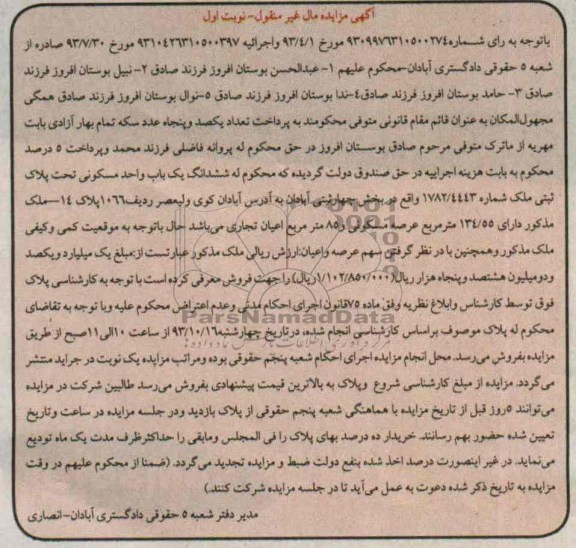 آگهی مزایده مال غیر منقول- نوبت اول
باتوجه به رای شماره۹۳۰۹۹۷۶۳۱۰۵۰۰۲۷۴ مورخ ۹۳/۴/۱ واجرائیه ۹۳۱۰۴۲۶۳۱۰۵۰۰۳۹۷ مورخ ۹۳/۷/۳۰ صادره از
شعبه ۵ حقوقی دادگستری آبادان-محکوم علیهم ۱- عبدالحسن بوستان افروز فرزند صادق ۲- نبیل بوستان افروز فرزند
صادق ۳- حامد بوستان افروز فرزند صادق۴-ندا بوستان افروز فرزند صادق ۵-نوال بوستان افروز فرزند صادق همگی
مجهول‌المکان به عنوان قائم مقام قانونی متوفی محکومند به پرداخت تعداد یکصد وپنجاه عدد سکه تمام بهار آزادی بابت
مهریه از ماترک متوفی مرحوم صادق بوستان افروز در حق محکوم له پروانه فاضلی فرزند محمد وپرداخت ۵ درصد
محکوم به بابت هزینه اجراییه در حق صندوق دولت گردیده که محکوم له ششدانگ یک باب واحد مسکونی تحت پلاک
ثبتی ملک شماره ۱۷۸۲/۴۴۴۳ واقع در بخش چهارثبتی آبادان به آدرس آبادان کوی ولیعصر ردیف۱۰۶۶پلاک ۱۴-ملک
مذکور دارای ۱۳۴/۵۵ مترمربع عرصه مسکونی و۸۵ متر مربع اعیان تجاری می‌باشد حال باتوجه به موقعیت کمی وکیفی
ملک مذکور وهمچنین با در نظر گرفتن سهم عرصه واعیان:ارزش ریالی ملک مذکور عبارتست از:مبلغ یک میلیارد ویکصد
ودومیلیون هشتصد وپنجاه هزار ریال(۱/۱۰۲/۸۵۰/۰۰۰ریال) را جهت فروش معرفی کرده است با توجه به کارشناسی پلاک
فوق توسط کارشناس وابلاغ نظریه وفق ماده ۷۵قانون اجرای احکام مدنی وعدم اعتراض محکوم علیه وبا توجه به تقاضای
محکوم له پلاک موصوف براساس کارشناسی انجام شده، در تاریخ چهارشنبه۹۳/۱۰/۱۶ از ساعت ۱۰الی۱۱صبح از طریق
مزایده بفروش می‌رسد. محل انجام مزایده اجرای احکام شعبه پنجم حقوقی بوده ومراتب مزایده یک نوبت در جراید منتشر
می‌گردد. مزایده از مبلغ کارشناسی شروع وپلاک به بالاترین قیمت پیشنهادی بفروش می‌رسد طالبین شرکت در مزایده
می‌توانند ۵روز قبل از تاریخ مزایده با هماهنگی شعبه پنجم حقوقی از پلاک بازدید ودر جلسه مزایده در ساعت وتاریخ
تعیین شده حضور بهم رسانند. خریدار ده درصد بهای پلاک را فی المجلس ومابقی را حداکثرظرف مدت یک ماه تودیع
می‌نماید. در غیر اینصورت درصد اخذ شده بنفع دولت ضبط و مزایده تجدید می‌گردد. (ضمنا از محکوم علیهم در وقت
مزایده به تاریخ ذکر شده دعوت به عمل می‌آید تا در جلسه مزایده شرکت کنند.)
مدیر دفتر شعبه ۵ حقوقی دادگستری آبادان-انصاری
ParsNamadData